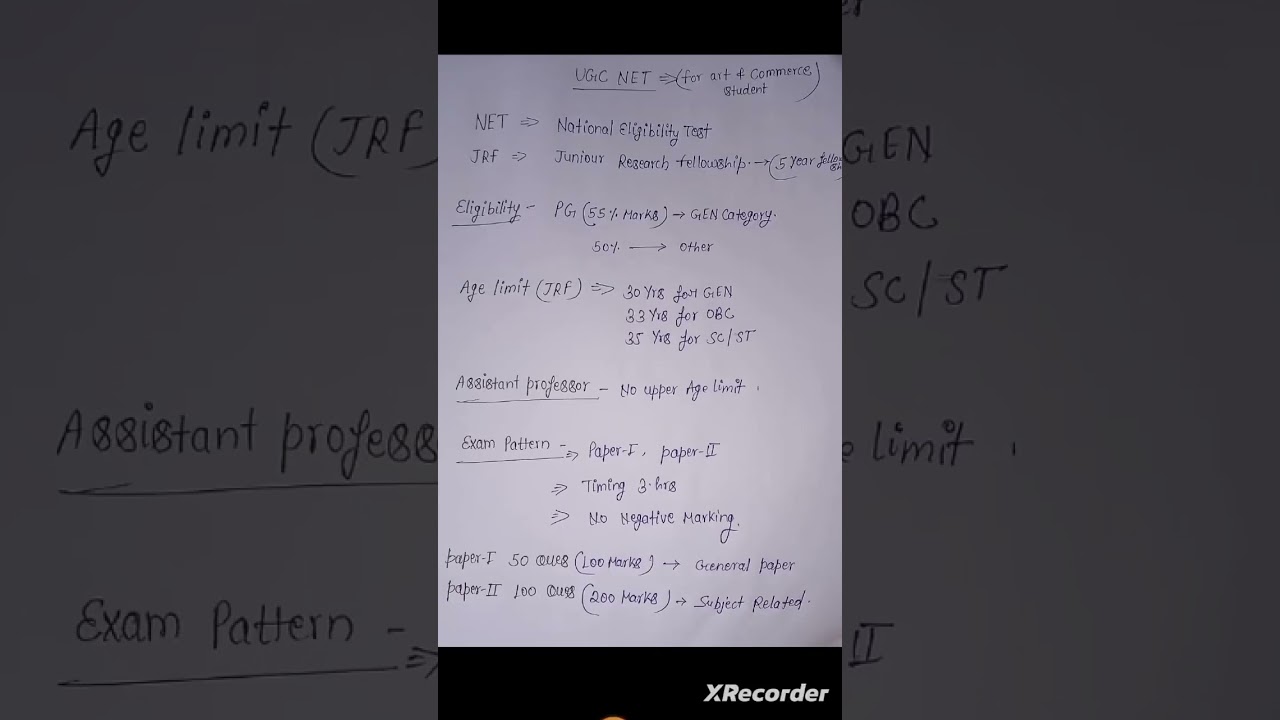 UGC NET ⇒ (for art & Commerce student)
NET ⇒ National Eligibility Test
JRF ⇒ Juniour Research fellowship. → (5 Year
Eligibility - PG (55% Marks) → GEN Category.
50% → Other
Age limit (JRF) ⇒ 30 Yrs for GEN
33 Yrs for OBC
35 Yrs for SC/ST
Assistant professor - No upper Age limit.
Exam Pattern - ⇒ Paper-I, paper-II
⇒ Timing 3.hrs
⇒ No Negative Marking.
paper-I 50 Ques (100 Marks) → General paper
paper-II 100 Ques (200 Marks) → Subject Related.
XRecorder
Age limit (JRF)
GEN
OBC
SC/ST
Assistant profess
e limit.
Exam Pattern - ⇒
II